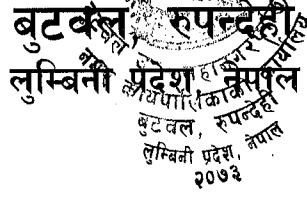 बुटवल, रुपन्देही
लुम्बिनी प्रदेश, नेपाल
बुटवल, रुपन्देही
लुम्बिनी प्रदेश, नेपाल
२०७३